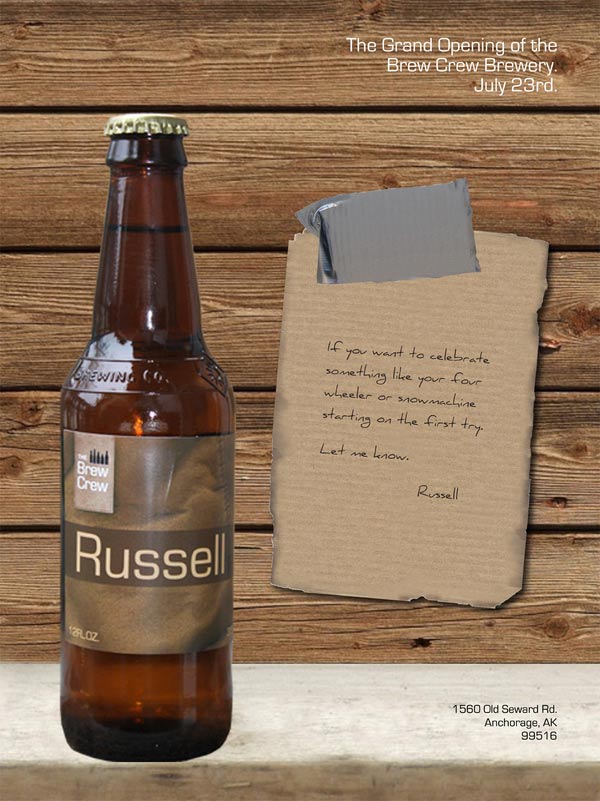 The Grand Opening of the
Brew Crew Brewery.
July 23rd.
BREWING CO.
THE
Brew
Crew
Russell
12FL.OZ.
If you want to celebrate
something like your four
wheeler or snowmachine
starting on the first try.
Let me know.
Russell
1560 Old Seward Rd.
Anchorage, AK
99516